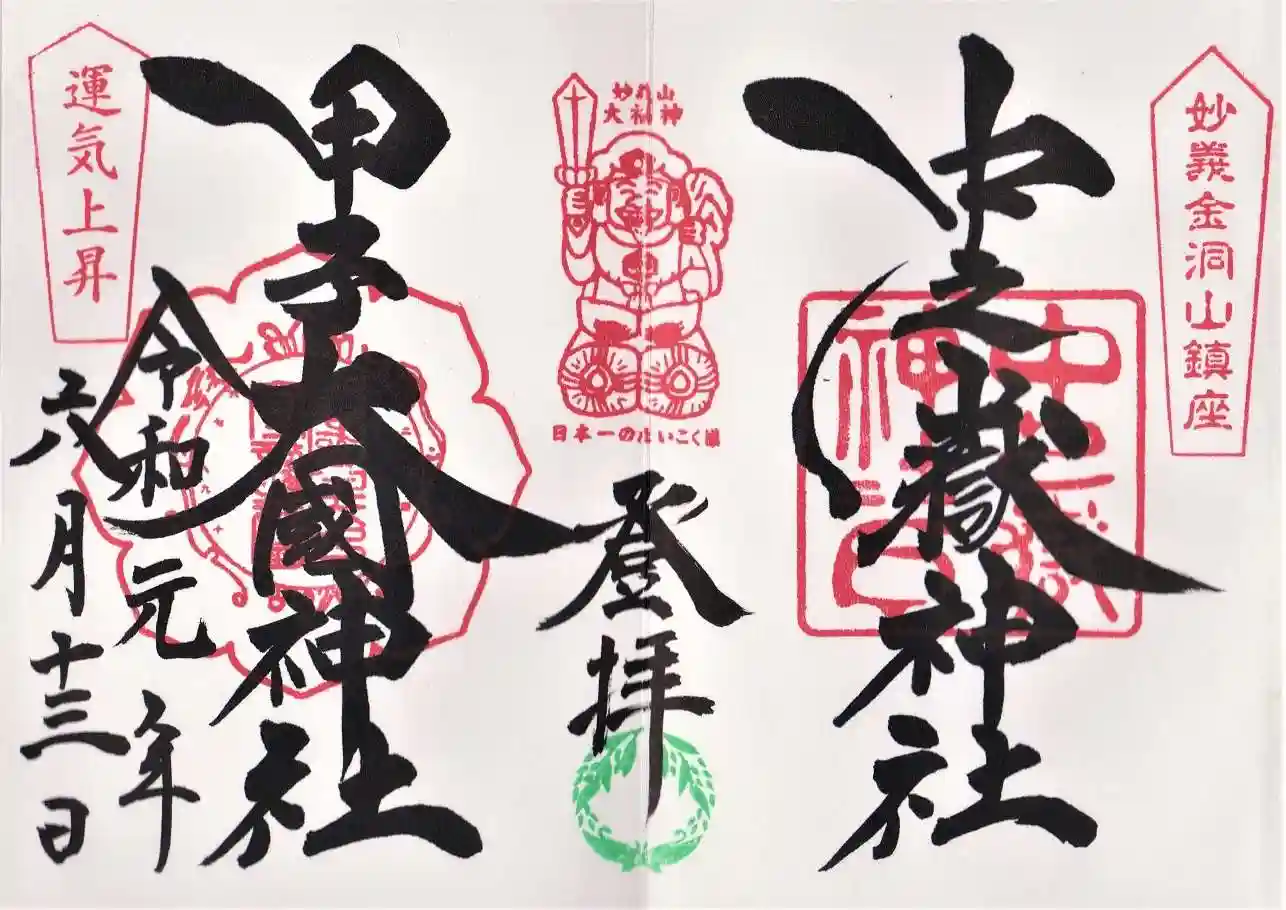 妙義金洞山鎮座
中之嶽神社
妙義山
大福神
日本一のだいこく様
登拝
甲子大國神社
運気上昇
令和元年
六月十三日